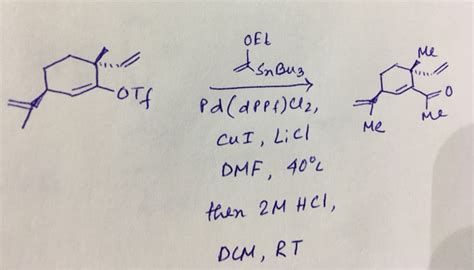 OEt
SnBu3
OTf
Pd(dppf)Cl2,
CuI, LiCl
DMF, 40°C
then 2M HCl,
DCM, RT
Me
O
Me
Me